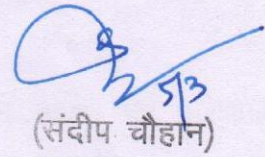 5/3
(संदीप चौहान)